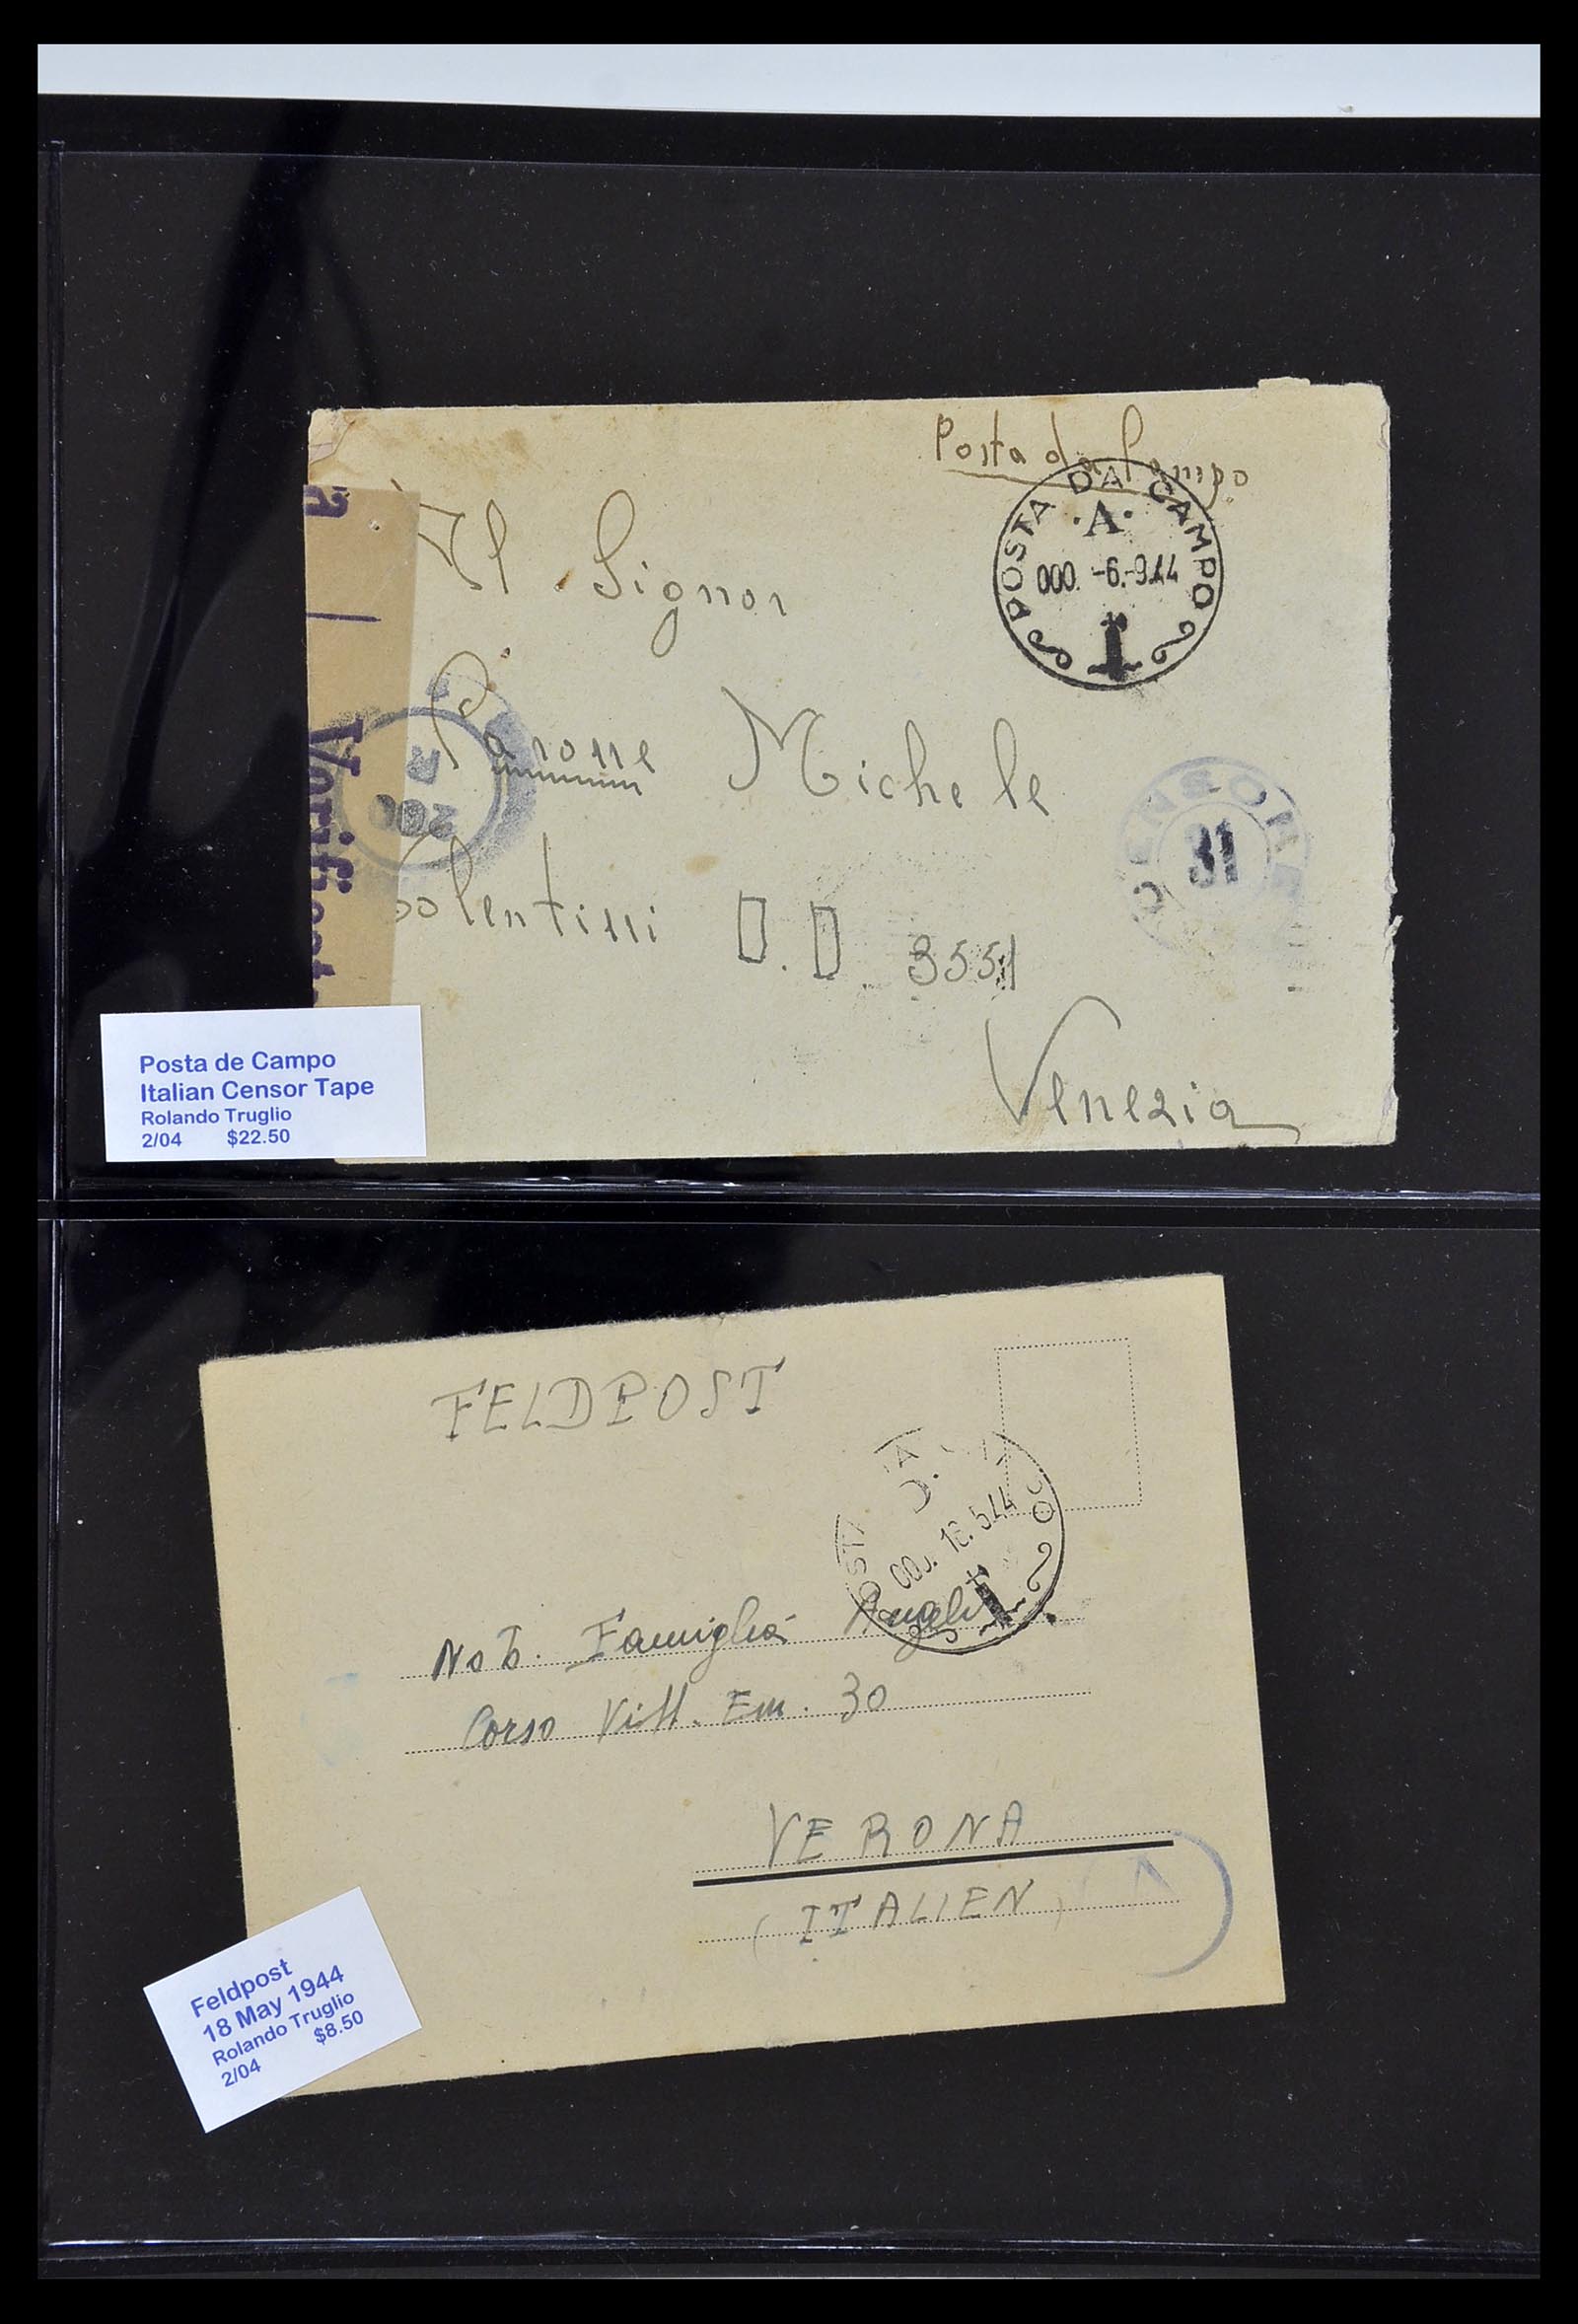 Posta da Campo
POSTA DA CAMPO
·A·
000. -6.-9.44
Al Signor
Panone Michele
Verificat
R
200
CENSORE
31
Tolentini D.D. 3551
Venezia
Posta de Campo
Italian Censor Tape
Rolando Truglio
2/04 $22.50
FELDPOST
18.5.44
Nob. Famiglia
Corso Vitt. Em. 30
VERONA
(ITALIEN)
Feldpost
18 May 1944
Rolando Truglio
2/04 $8.50